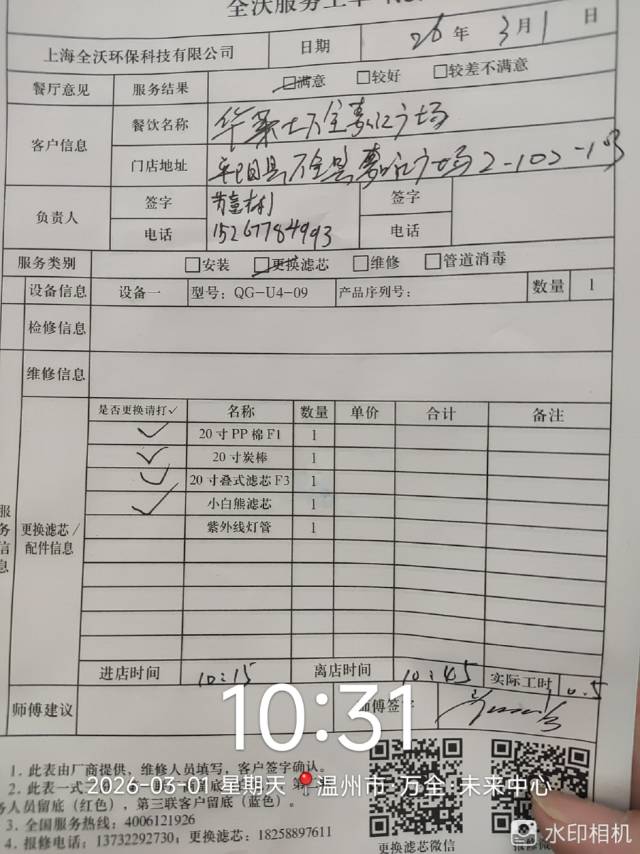 全沃服务工单
上海全沃环保科技有限公司 日期 26 年 3 月 1 日
餐厅意见 服务结果 □满意 □较好 □较差不满意
客户信息 餐饮名称 华莱士万全嘉汇广场
门店地址 平阳县万全县嘉汇广场2-102-103
负责人 签字 签字
电话 15267784993 电话
服务类别 □安装 □更换滤芯 □维修 □管道消毒
设备信息 设备一 型号：QG-U4-09 产品序列号： 数量 1
检修信息
维修信息
服务信息 更换滤芯/配件信息
是否更换请打✓ 名称 数量 单价 合计 备注
✓ 20寸PP棉F1 1
✓ 20寸炭棒 1
✓ 20寸叠式滤芯F3 1
✓ 小白熊滤芯 1
紫外线灯管 1
进店时间 10:15 离店时间 10:45 实际工时 0.5
师傅建议 师傅签字
10:31
2026-03-01 星期天 温州市·万全·未来中心
1. 此表由厂商提供，维修人员填写，客户签字确认。
2. 此表一式
务人员留底（红色），第三联客户留底（蓝色）。
3. 全国服务热线：4006121926
4. 报修电话：13732292730；更换滤芯：18258897611
更换滤芯微信 报修微
水印相机